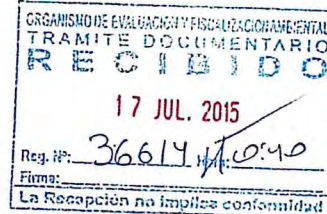 ORGANISMO DE EVALUACIÓN Y FISCALIZACIÓN AMBIENTAL
TRAMITE DOCUMENTARIO
RECIBIDO
17 JUL. 2015
Reg. Nº: 36614
Firma:
La Recepción no implica conformidad